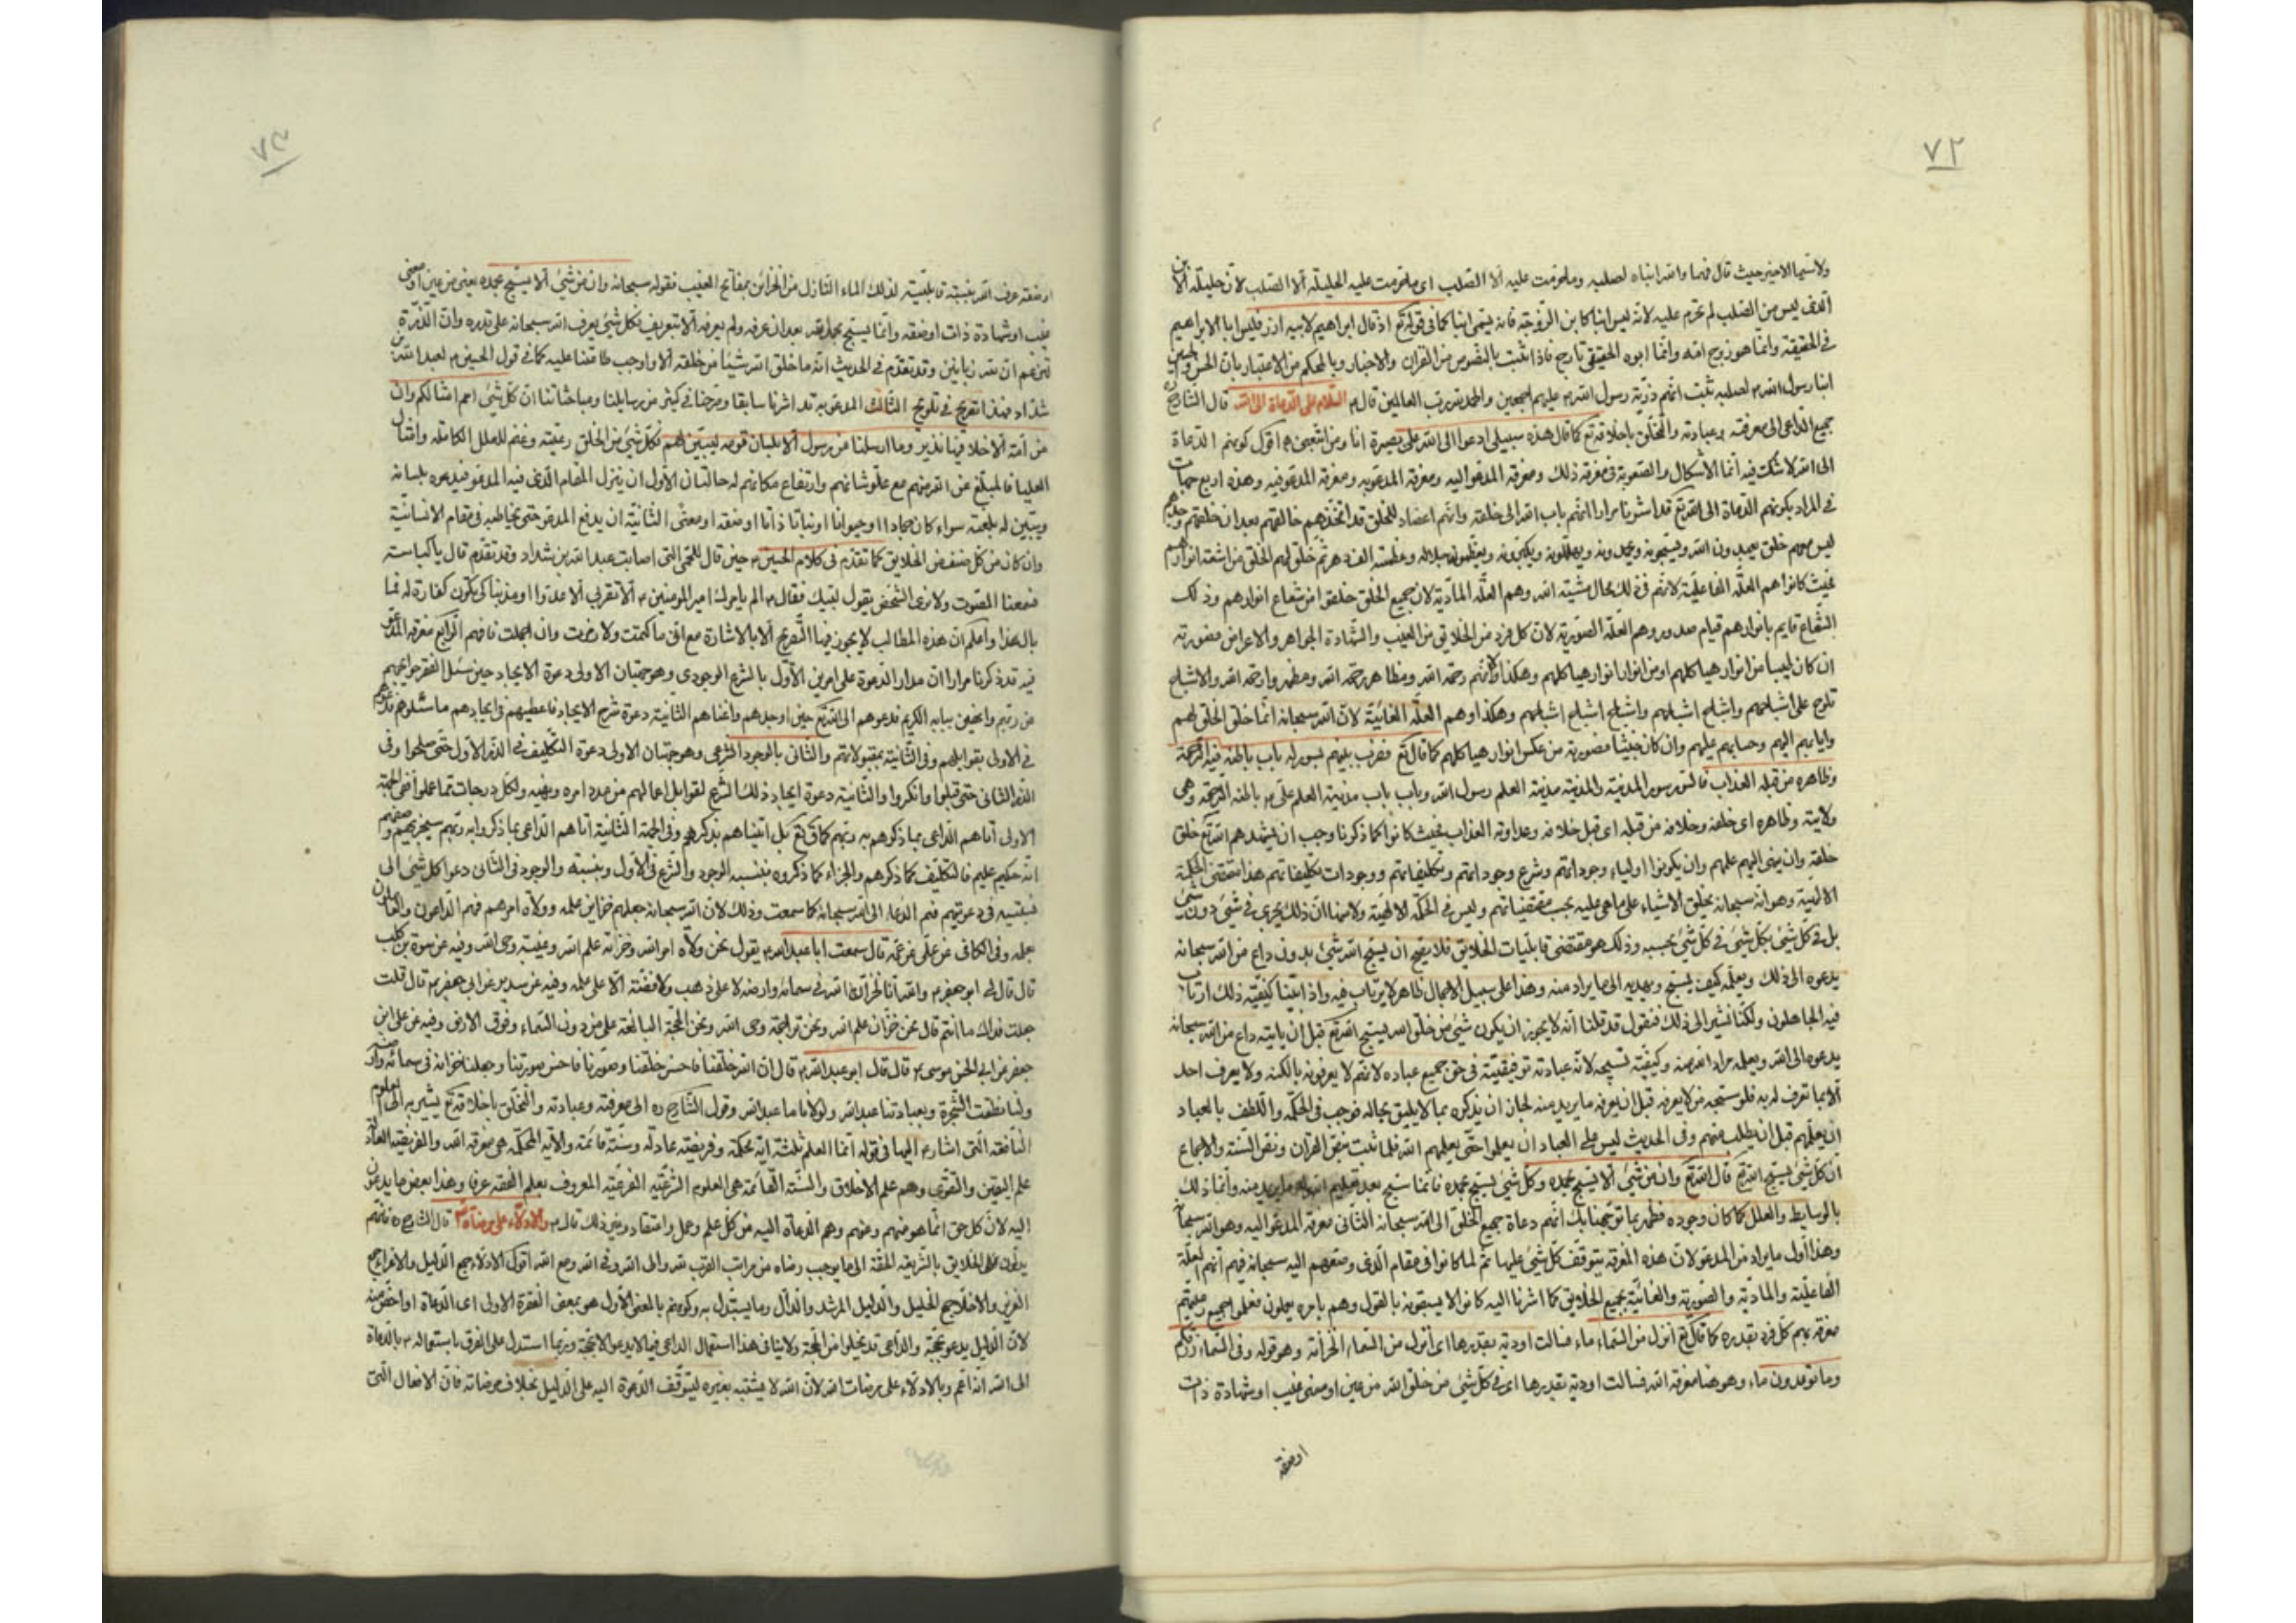 ٧٢
ولا سيما الاخير حيث قال فهما والله ابناه لصلبه وما حرمت عليه الا الصلب اى ما حرمت عليه الحليلة الا الصلب لان حليلة الابن
الذى ليس من الصلب لم تحرم عليه لانه ليس ابنا كابن الزوجة فانه يسمى ابنا كما فى قوله تع اذ قال ابراهيم لابيه ازر فليس ابا لابراهيم
فى الحقيقة وانما هو زوج امه وانما ابوه الحقيقى تارح فاذا ثبت بالنصوص من القران والاخبار وبالمحكم من الاعتبار بان الحسن والحسين
ابنا رسول الله ص لصلبه ثبت انهم ذرية رسول الله ص عليهم اجمعين والحمد لله رب العالمين قال ع السلام على الدعاة الى الله قال الشارح ره
جميع الداعى الى معرفته وعبادته والتخلق باخلاقه تع كما قال هذه سبيلى ادعوا الى الله على بصيرة انا ومن اتبعنى ه اقول كونهم الدعاة
الى الله لا شك فيه انما الاشكال والصعوبة فى معرفة ذلك ومعرفة المدعو اليه ومعرفة المدعو به ومعرفة المدعو فيه وهذه اربع جهات
فى المراد بكونهم الدعاة الى الله تع قد اشرنا مرارا انهم باب الله الى خلقه وانهم اعضاد للخلق قد اتخذهم خالقهم بعد ان خلقهم وحدهم
ليس معهم خلق يعبدون الله ويسبحونه ويحمدونه ويهللونه ويكبرونه ويعظمونه بجلاله وعظمته الف دهر ثم خلق لهم الخلق من اشعة انوارهم
بحيث كانوا هم العلة الفاعلية لانهم فى ذلك محال مشية الله وهم العلة المادية لان جميع الخلق خلقوا من شعاع انوارهم وذلك
الشعاع قايم بانوارهم قيام صدور وهم العلة الصورية لان كل فرد من الخلايق من الغيب والشهادة الجواهر والاعراض فصورته
ان كان طيبا من انوار هياكلهم او من انوار انوار هياكلهم وهكذا لانهم رحمة الله ومظاهر رحمة الله ومظهروا رحمة الله والاشباح
تلوح على اشباحهم واشباح اشباحهم واشباح اشباح اشباحهم وهكذا وهم العلة الغائية لان الله سبحانه انما خلق الخلق لهم
وايابهم اليهم وحسابهم عليهم وان كان خبيثا فصورته من عكس انوار هياكلهم كما قال تع فضرب بينهم بسور له باب باطنه فيه الرحمة
وظاهره من قبله العذاب فالسور سور المدينة والمدينة مدينة العلم رسول الله وباب باب مدينة العلم على ع باطنه الرحمة وهى
ولايته وظاهره اى خلفه وخلافه من قبله اى قبل خلافه وعداوته العذاب بحيث كانوا كما ذكرنا وجب ان يشهدهم الله تع خلق
خلقه وان ينهى اليهم علمهم وان يكونوا اولياء وجوداتهم وشرع وجوداتهم وتكليفاتهم ووجودات تكليفاتهم هذا مقتضى الحكمة
الالهية وهو انه سبحانه يخلق الاشياء على ما هى عليه بحسب مقتضياتهم وليس فى الحكمة الالهية ولا منها ان ذلك يجرى فى شئ دون شئ
بل فى كل شئ بكل شئ فى كل شئ بحسبه وذلك هو مقتضى قابليات الخلايق فلا يصح ان يسبح الله شئ بدون داع من الله سبحانه
يدعوه الى ذلك ويعلمه كيف يسبح ويهديه الى ما يراد منه وهذا على سبيل الاجمال ظاهر لا يرتاب فيه واذا ابتنا كيفية ذلك ارتاب
فيه الجاهلون ولكنا نشير الى ذلك فنقول قد قلنا انه لا يجوز ان يكون شئ من خلق الله يسبح الله تع قبل ان ياتيه داع من الله سبحانه
يدعوه الى الله ويعلمه مراد الله منه وكيفية تسبيحه لانه عبادته توقيفية فى حق جميع عباده لانهم لا يعرفونه بالكنه ولا يعرف احد
الا بما تعرف له به فلو سبحه من لا يعرفه قبل ان يعرفه ما يريد منه لجاز ان يذكره بما لا يليق بجاله فوجب فى الحكمة واللطف بالعباد
ان يعلمهم قبل ان يطلب منهم وفى الحديث ليس على العباد ان يعلموا حتى يعلمهم الله فلما ثبت بنص القران ونص السنة والاجماع
ان كل شئ يسبح الله تع قال الله تع وان من شئ الا يسبح بحمده وكل شئ يسبح بحمده فانما سبح بعد تعليم الله له ما يريد منه وانما ذلك
بالوسايط والعلل كما كان وجوده فظهر بما نوجهنا بك انهم دعاة جميع الخلق الى الله سبحانه الثانى معرفة المدعو اليه وهو الله سبحانه
وهذا اول ما يراد من المدعو لان هذه المعرفة يتوقف كل شئ عليها ثم لما كانوا فى مقام الدعى وضعهم اليه سبحانه فيهم انهم العلة
الفاعلية والمادية والصورية والغائية بجميع الخلايق كما اشرنا اليه كانوا لا يسبقونه بالقول وهم بامره يعملون فعلموا جميع رعيتهم
معرفة ربهم كل فرد بقدره كما قال تع انزل من السماء ماء فسالت اودية بقدرها اى انزل من السماء الخزانة وهو قوله وفى السماء رزقكم
وما توعدون ماء وهو هنا معرفة الله فسالت اودية بقدرها اى فى كل شئ من خلق الله من عين او معنى غيب او شهادة ذات
او صفة
٧٣
او صفة عرف الله بنسبة قابليته لذلك الماء النازل من الخزائن بمفاتح الغيب فقوله سبحانه وان من شئ الا يسبح بحمده يعنى من عين او معنى
غيب او شهادة ذات او صفة وانما يسبح بحمد الله بعد ان عرفه ولم يعرفه الا بتعريفه فكل شئ يعرف الله سبحانه على قدره وان الذرة
لتزعم ان لله زبانيتين وقد تقدم فى الحديث انه ما خلق الله شيئا من خلقه الا واوجب طاعتنا عليه كما فى قول الحسين ع لعبد الله بن
شداد فهذا تصريح فى تلويح الثالث المدعو به قد اشرنا سابقا وصرحنا فى كثير من رسايلنا ومباحثاتنا ان كل شئ امم امثالكم وان
من امة الا خلا فيها نذير وما ارسلنا من رسول الا بلسان قومه ليبين لهم فكل شئ من الخلق رعيته وغنم للملل الكاملة وامثال
العليا فالمبلغ عن الله منهم مع علو شانهم وارتفاع مكانهم له حالتان الاول ان ينزل المقام الذى فيه المدعو فيدعوه بلسانه
ويبين له بلغته سواء كان جمادا او حيوانا او نباتا ذاتا او صفة او معنى الثانية ان يرفع المدعو حتى يخاطبه فى مقام الانسانية
وان كان من كل صنف من الخلايق كما تقدم فى كلام الحسين ع حين قال للحمى التى اصابت عبد الله بن شداد وقد تقدم قال يا كباسة
فسمعنا الصوت ولا نرى الشخص يقول لبيك فقال ع الم يامرك امير المؤمنين ع الا تقربى الا عدوا او مذنبا لكى يكون كفارة له فما
بال هذا واعلم ان هذه المطالب لا يجوز فيها التصريح الا بالاشارة مع انى ما كتمت ولا رضت وان اجملت فافهم الرابع معرفة المدعو
فيه قد ذكرنا مرارا ان مدار الدعوة على امرين الاول بالشرع الوجودى وهو جهتان الاولى دعوة الايجاد حين سئل الفقر حوايجهم
من ربهم واقفين ببابه الكريم فدعوهم الى الله تع حين اوجدهم واغناهم الثانية دعوة شرع الايجاد فاعطيهم فى ايجادهم ما سئلوهم فدعوهم
فى الاولى بقوابلهم وفى الثانية بمقبولاتهم والثانى بالوجود الشرعى وهو جهتان الاولى دعوة التكليف فى الذر الاول حتى صلحوا وفى
الذر الثانى حتى قبلوا وانكروا والثانية دعوة ايجاد ذلك الشرع لقوابل اعمالهم من مدد امره ونهيه ولكل درجات مما عملوا ففى الجهة
الاولى اتاهم الداعى بما ذكروهم به ربهم كما قال تع بل اتيناهم بذكرهم وفى الجهة الثانية اتاهم الداعى بما ذكروا به ربهم سيجزيهم وصفهم
انه حكيم عليم فالتكليف كما ذكرهم والجزاء كما ذكروه بنفسه الوجود والشرع فى الاول وبنسبته والوجود فى الثانى دعوا كل شئ الى
فبنسبته فى دعوتهم فهم الدعاة الى الله سبحانه كما سمعت وذلك لان الله سبحانه جعلهم خزاين علمه وولاة امرهم فهم الداعون والعاملون
بعلمه وفى الكافى عن على عن عمه قال سمعت ابا عبد الله ع يقول نحن ولاة امر الله وخزنة علم الله وعيبة وحى الله وفيه عن سورة بن كليب
قال قال لى ابو جعفر ع والله انا لخزان الله فى سمائه وارضه لا على ذهب ولا فضة الا على علمه وفيه عن سدير عن ابى جعفر ع قال قلت
جعلت فداك ما انتم قال نحن خزان علم الله ونحن تراجمة وحى الله ونحن الحجة البالغة على من دون السماء وفوق الارض وفيه عن على ابن
جعفر عن ابى الحسن موسى ع قال قال ابو عبد الله ع قال ان الله خلقنا فاحسن خلقنا وصورنا فاحسن صورتنا وجعلنا خزانه فى سمائه وارضه
ولنا نطقت الشجرة وبعبادتنا عبد الله ولولانا ما عبد الله وقول الشارح ره الى معرفته وعبادته والتخلق باخلاقه تع يشير به الى العلوم
النافعة التى اشار ع اليها فى قوله انما العلم ثلثة اية محكمة وفريضة عادلة وسنة قائمة والاية المحكمة هى معرفة الله والفريضة العادلة
علم اليقين والتقوى وهم علم الاخلاق والسنة القائمة هى العلوم الشرعية الفرعية المعروف بعلم الفقه عرفا وهذا بعض ما يدعون
اليه لان كل حق انما هو منهم وعنهم وهم الدعاة اليه من كل علم وعمل واعتقاد وغير ذلك قال ع والادلاء على مرضاة الله قال الشارح ره فانهم
يدلون الخلايق بالشريعة الحقة الى ما يوجب رضاه من مراتب القرب لله والى الله وفى الله ومع الله اقول الادلاء جمع الدليل والاعزاء جمع
العزيز والاخلاء جمع الخليل والدليل المرشد والدال وما يستدل به وكونهم بالمعنى الاول هو بمعنى الفقرة الاولى اى الدعاة او اخص منه
لان الدليل يدعو بحجة والداعى قد يخلوا من الحجة ولا ينافى هذا استعمال الداعى فيما لا يدعو الا بحجة وربما استدل على الفرق باستعماله ع بالدعاة
الى الله انه اعم وبالادلاء على مرضات الله لان الله لا يشتبه بغيره ليتوقف الدعوة اليه على الدليل بخلاف مرضاته فان الافعال التى